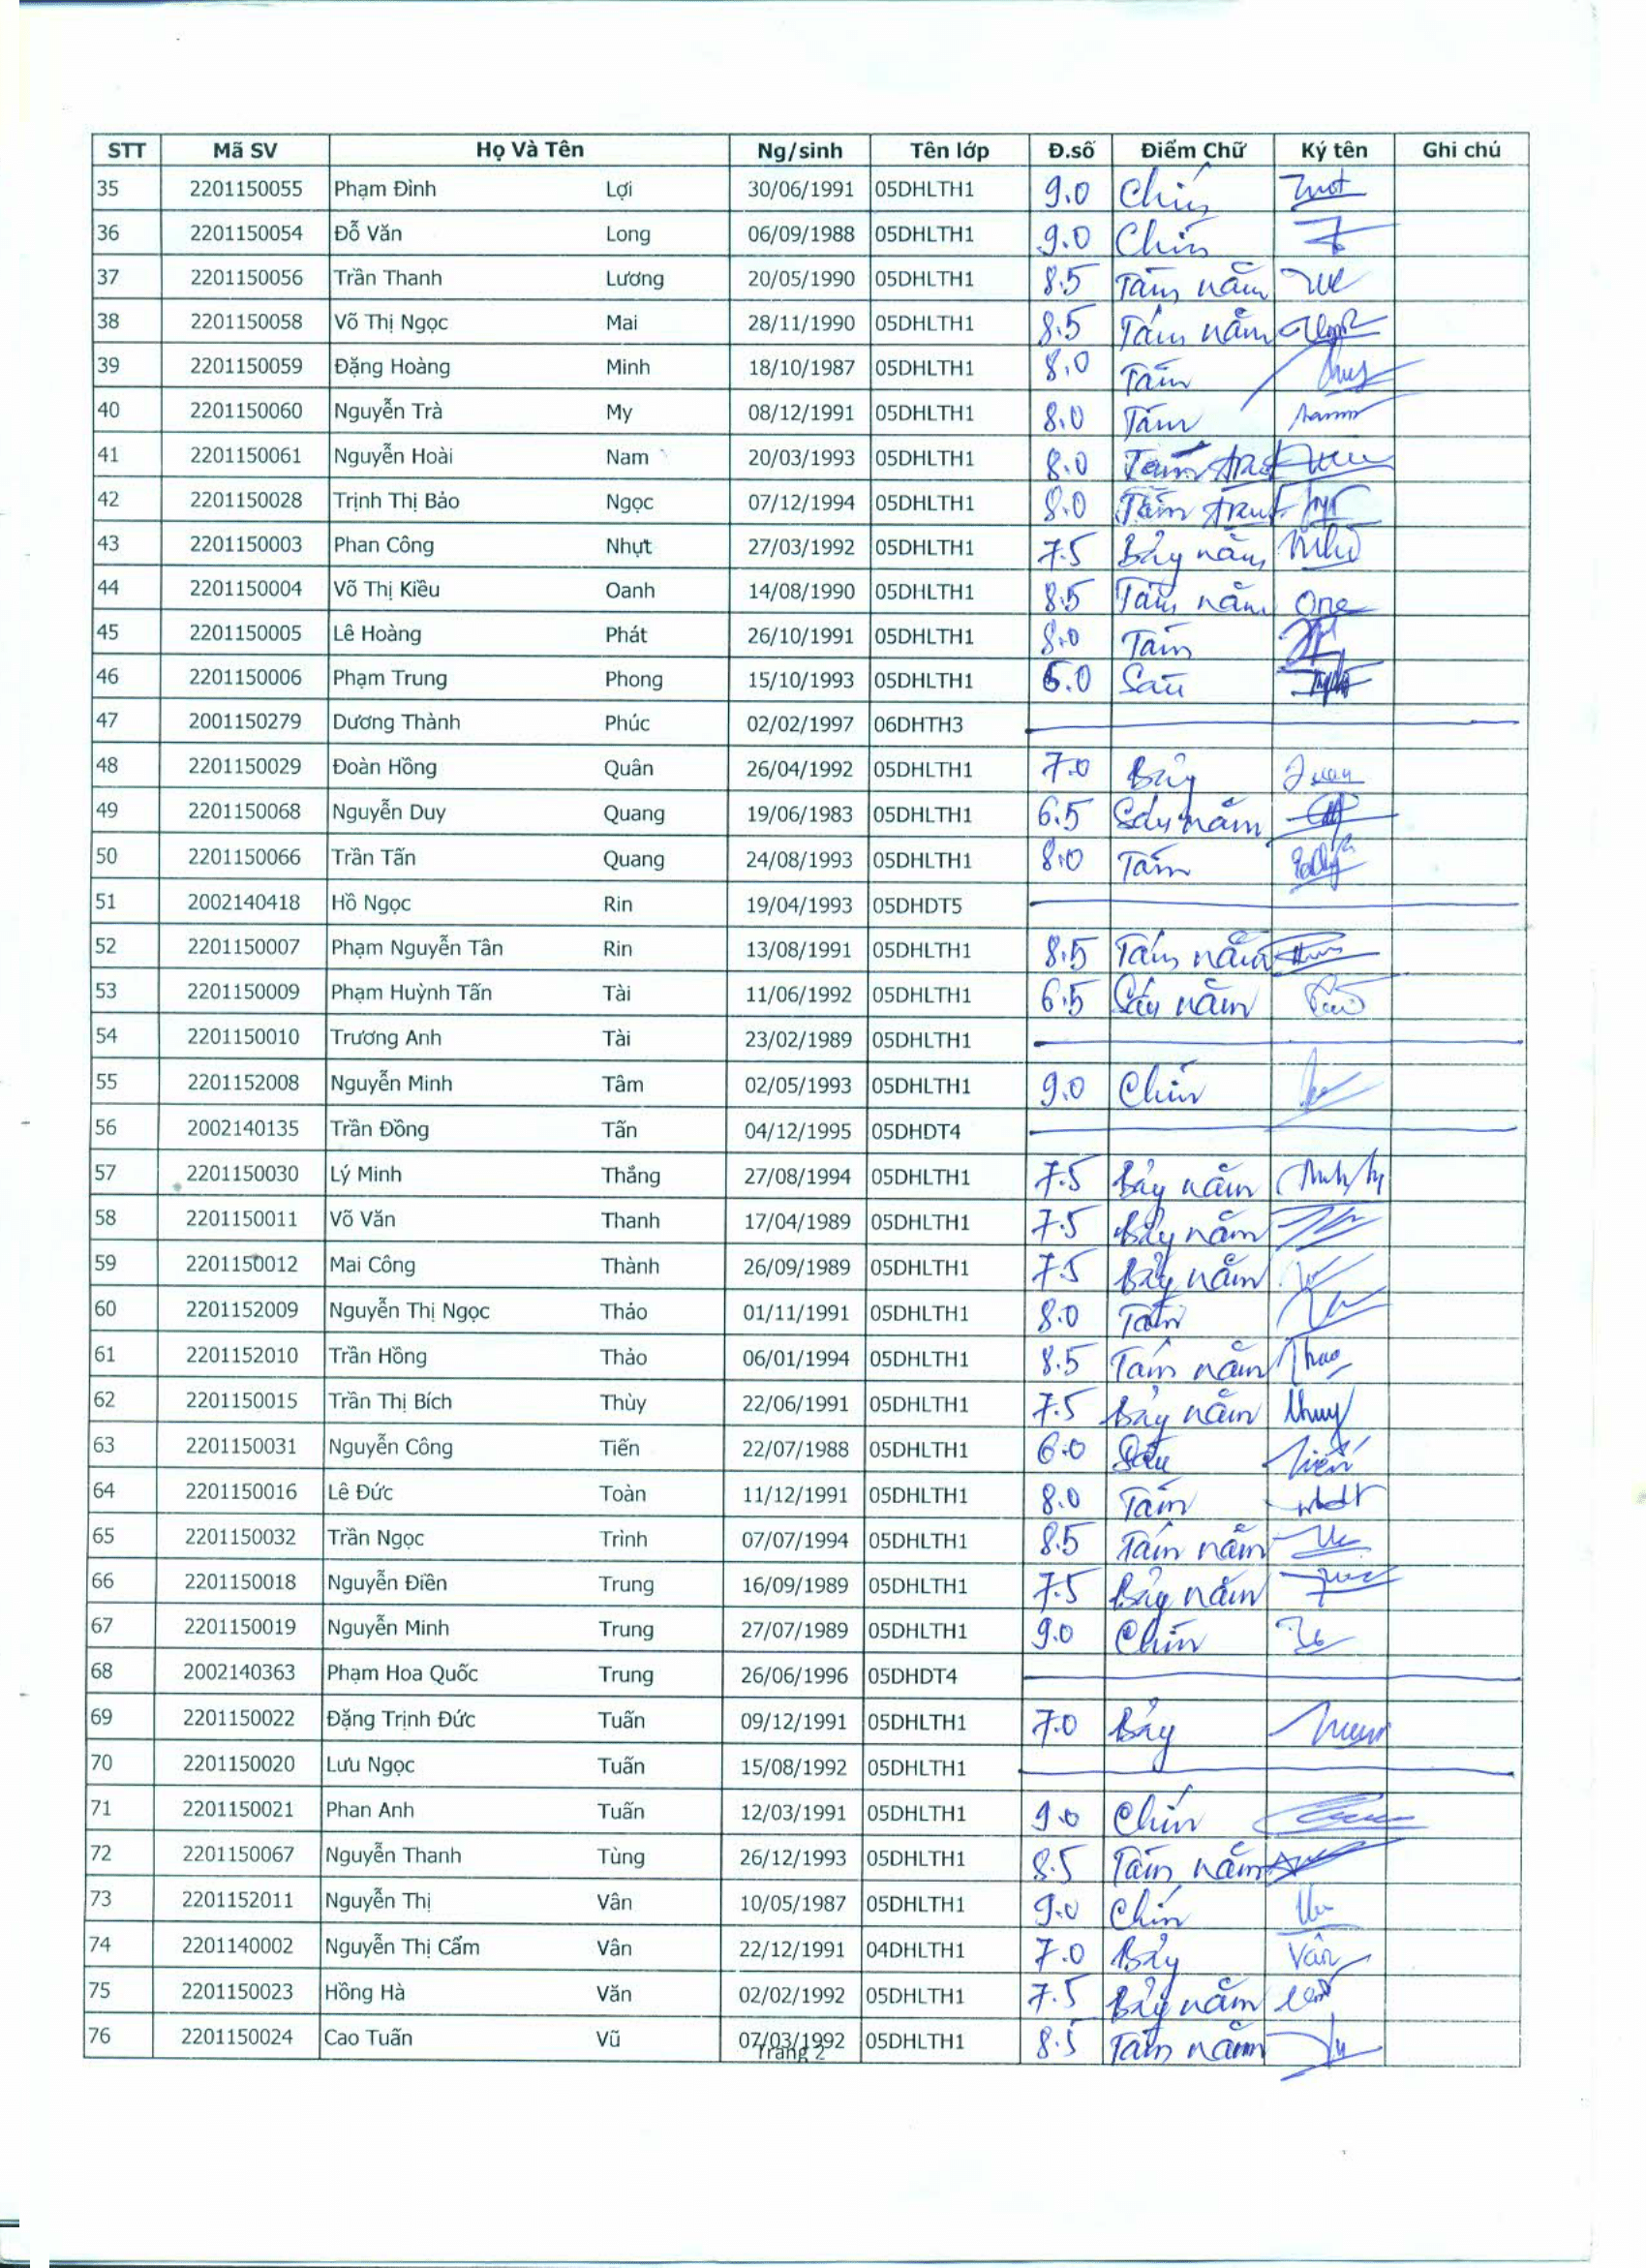 STT Mã SV Họ Và Tên Ng/sinh Tên lớp Đ.số Điểm Chữ Ký tên Ghi chú
35 2201150055 Phạm Đình Lợi 30/06/1991 05DHLTH1 9.0 Chín
36 2201150054 Đỗ Văn Long 06/09/1988 05DHLTH1 9.0 Chín
37 2201150056 Trần Thanh Lương 20/05/1990 05DHLTH1 8.5 Tám năm
38 2201150058 Võ Thị Ngọc Mai 28/11/1990 05DHLTH1 8.5 Tám năm
39 2201150059 Đặng Hoàng Minh 18/10/1987 05DHLTH1 8.0 Tám
40 2201150060 Nguyễn Trà My 08/12/1991 05DHLTH1 8.0 Tám
41 2201150061 Nguyễn Hoài Nam 20/03/1993 05DHLTH1 8.0 Tám
42 2201150028 Trịnh Thị Bảo Ngọc 07/12/1994 05DHLTH1 8.0 Tám
43 2201150003 Phan Công Nhựt 27/03/1992 05DHLTH1 7.5 Bảy năm
44 2201150004 Võ Thị Kiều Oanh 14/08/1990 05DHLTH1 8.5 Tám năm
45 2201150005 Lê Hoàng Phát 26/10/1991 05DHLTH1 8.0 Tám
46 2201150006 Phạm Trung Phong 15/10/1993 05DHLTH1 6.0 Sáu
47 2001150279 Dương Thành Phúc 02/02/1997 06DHTH3
48 2201150029 Đoàn Hồng Quân 26/04/1992 05DHLTH1 7.0 Bảy
49 2201150068 Nguyễn Duy Quang 19/06/1983 05DHLTH1 6.5 Sáu năm
50 2201150066 Trần Tấn Quang 24/08/1993 05DHLTH1 8.0 Tám
51 2002140418 Hồ Ngọc Rin 19/04/1993 05DHDT5
52 2201150007 Phạm Nguyễn Tân Rin 13/08/1991 05DHLTH1 8.5 Tám năm
53 2201150009 Phạm Huỳnh Tấn Tài 11/06/1992 05DHLTH1 6.5 Sáu năm
54 2201150010 Trương Anh Tài 23/02/1989 05DHLTH1
55 2201152008 Nguyễn Minh Tâm 02/05/1993 05DHLTH1 9.0 Chín
56 2002140135 Trần Đồng Tấn 04/12/1995 05DHDT4
57 2201150030 Lý Minh Thắng 27/08/1994 05DHLTH1 7.5 Bảy năm
58 2201150011 Võ Văn Thanh 17/04/1989 05DHLTH1 7.5 Bảy năm
59 2201150012 Mai Công Thành 26/09/1989 05DHLTH1 7.5 Bảy năm
60 2201152009 Nguyễn Thị Ngọc Thảo 01/11/1991 05DHLTH1 8.0 Tám
61 2201152010 Trần Hồng Thảo 06/01/1994 05DHLTH1 8.5 Tám năm Thao
62 2201150015 Trần Thị Bích Thùy 22/06/1991 05DHLTH1 7.5 Bảy năm thuy
63 2201150031 Nguyễn Công Tiến 22/07/1988 05DHLTH1 6.0 Sáu Tiến
64 2201150016 Lê Đức Toàn 11/12/1991 05DHLTH1 8.0 Tám
65 2201150032 Trần Ngọc Trình 07/07/1994 05DHLTH1 8.5 Tám năm
66 2201150018 Nguyễn Điền Trung 16/09/1989 05DHLTH1 7.5 Bảy năm
67 2201150019 Nguyễn Minh Trung 27/07/1989 05DHLTH1 9.0 Chín
68 2002140363 Phạm Hoa Quốc Trung 26/06/1996 05DHDT4
69 2201150022 Đặng Trịnh Đức Tuấn 09/12/1991 05DHLTH1 7.0 Bảy
70 2201150020 Lưu Ngọc Tuấn 15/08/1992 05DHLTH1
71 2201150021 Phan Anh Tuấn 12/03/1991 05DHLTH1 9.0 Chín
72 2201150067 Nguyễn Thanh Tùng 26/12/1993 05DHLTH1 8.5 Tám năm
73 2201152011 Nguyễn Thị Vân 10/05/1987 05DHLTH1 9.0 Chín
74 2201140002 Nguyễn Thị Cẩm Vân 22/12/1991 04DHLTH1 7.0 Bảy Vân
75 2201150023 Hồng Hà Văn 02/02/1992 05DHLTH1 7.5 Bảy năm
76 2201150024 Cao Tuấn Vũ 07/03/1992 05DHLTH1 8.5 Tám năm
Trang 2